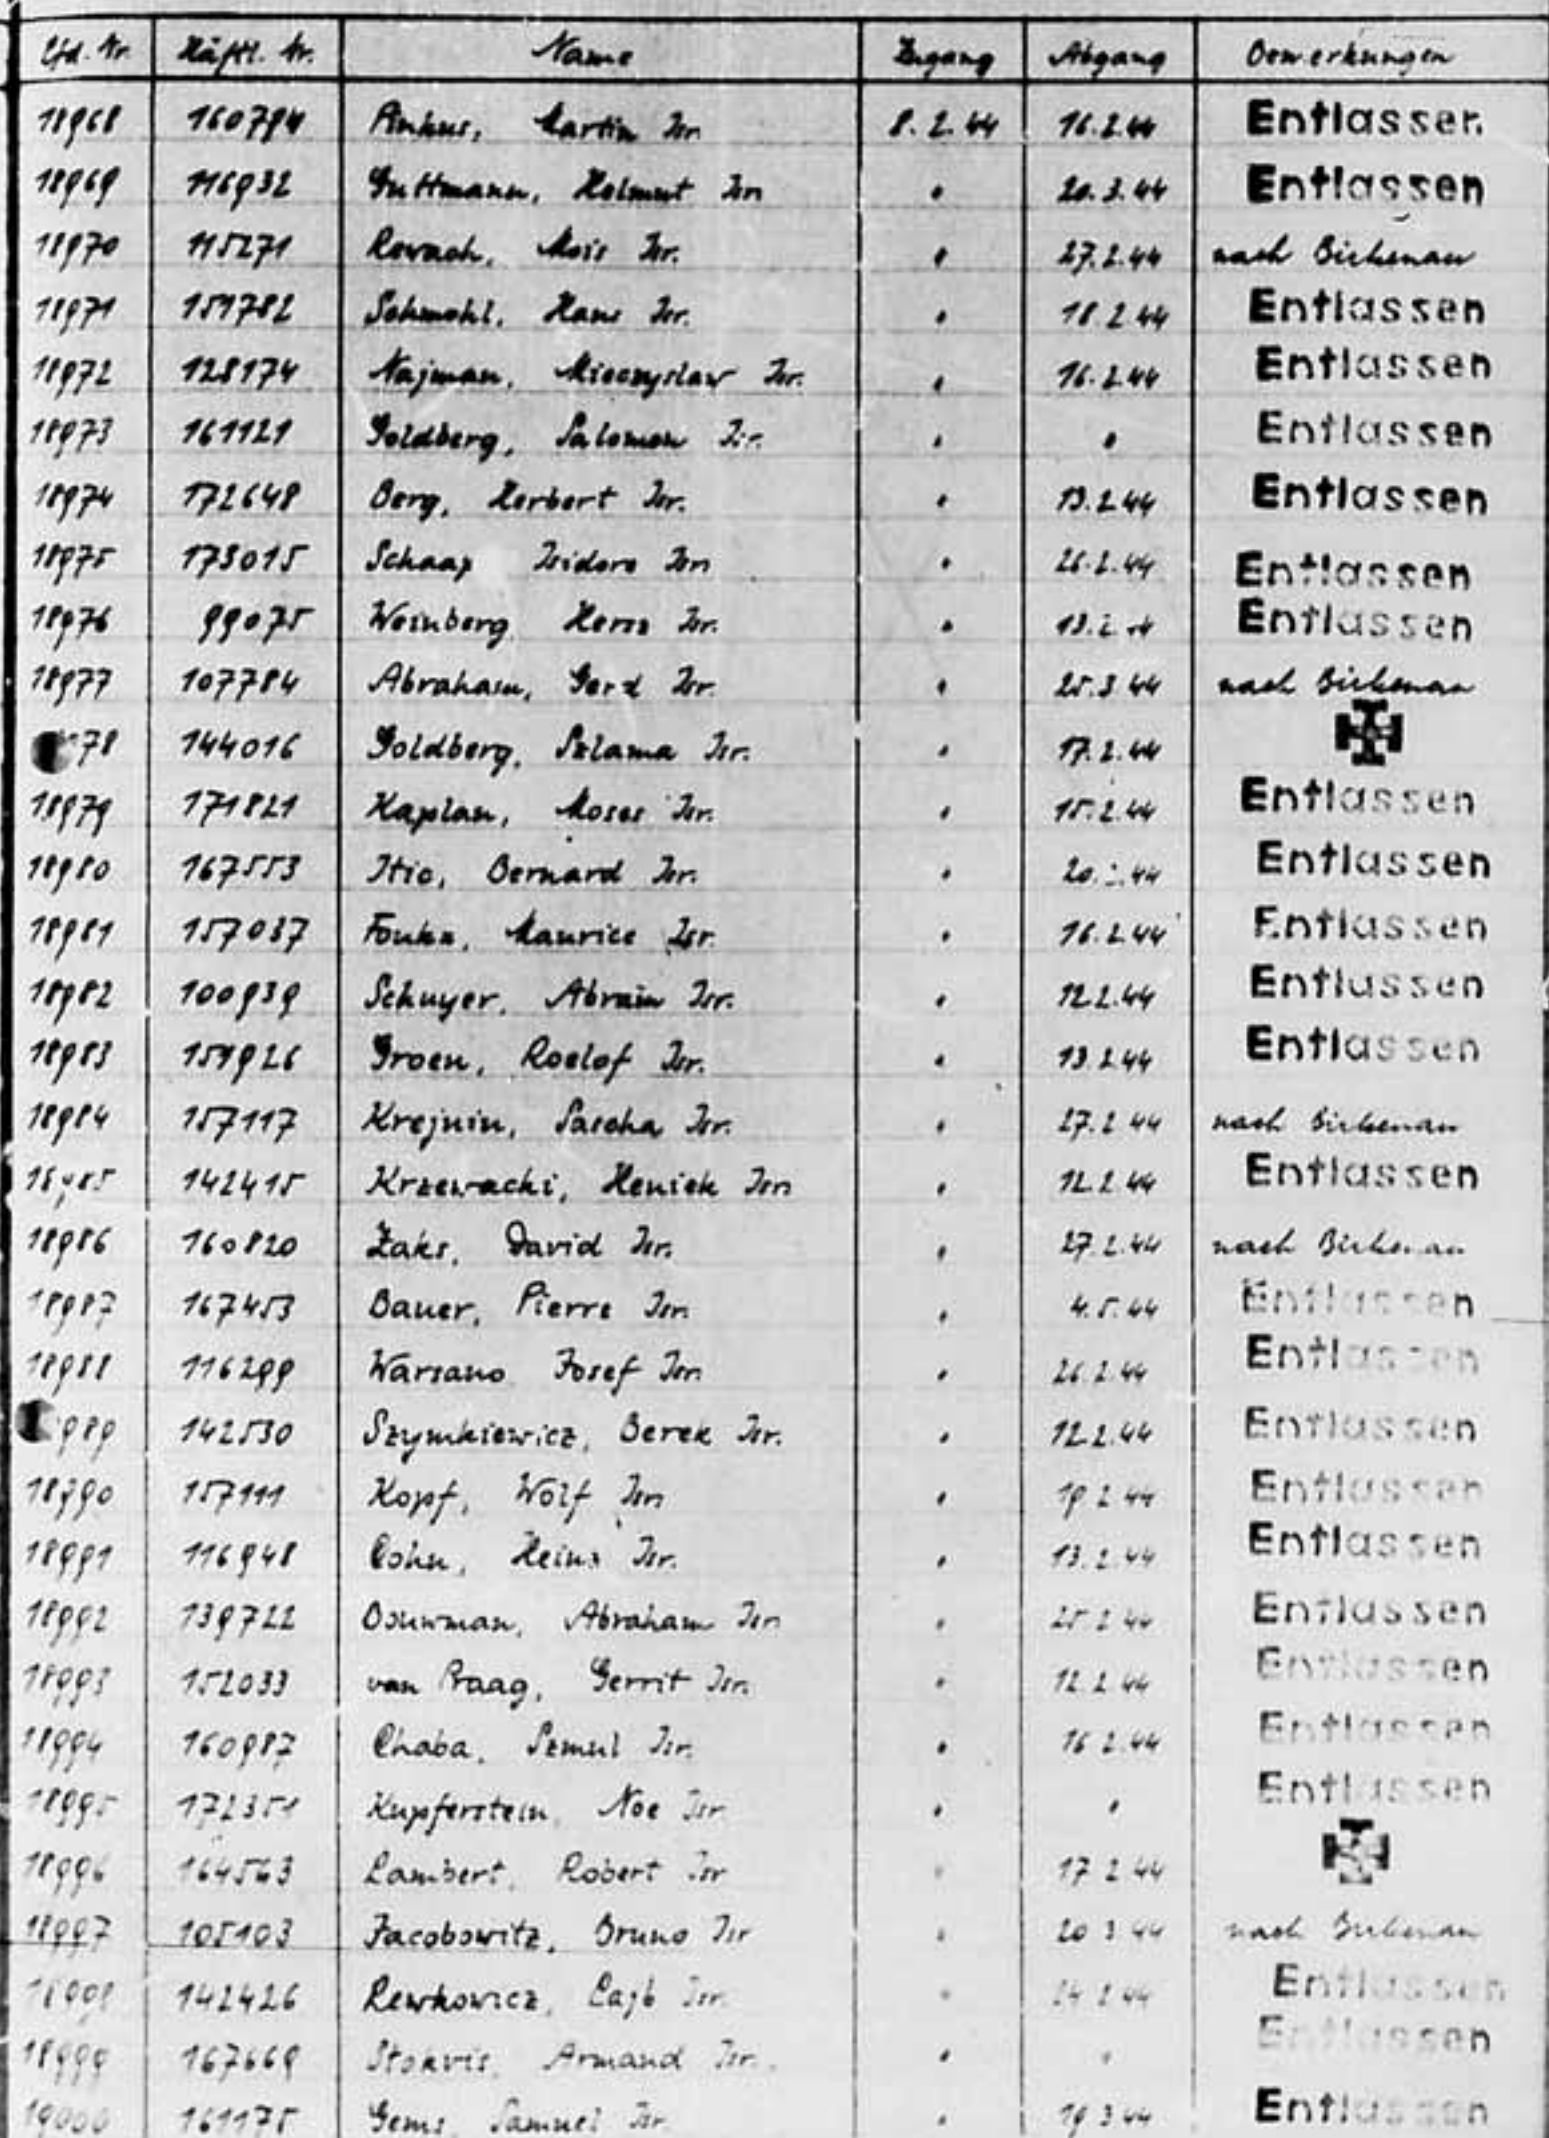 Lfd. Nr. Häftl. Nr. Name Zugang Abgang Bemerkungen
18968 160794 Pinkus, Martin Isr. 8.2.44 16.2.44 Entlassen
18969 116932 Guttmann, Helmut Isr. " 20.3.44 Entlassen
18970 115271 Rewach, Mois Isr. " 27.2.44 nach Birkenau
18971 151782 Schmohl, Hans Isr. " 18.2.44 Entlassen
18972 128174 Najman, Mieczyslaw Isr. " 16.2.44 Entlassen
18973 161121 Goldberg, Salomon Isr. " " Entlassen
18974 172648 Berg, Herbert Isr. " 13.2.44 Entlassen
18975 173015 Schaap Isidore Isr. " 26.2.44 Entlassen
18976 99075 Weinberg Hersz Isr. " 13.2.44 Entlassen
18977 107784 Abraham, Gerd Isr. " 25.3.44 nach Birkenau
78 144016 Goldberg, Szlama Isr. " 17.2.44
18979 171821 Kaplan, Moses Isr. " 15.2.44 Entlassen
18980 167553 Itic, Bernard Isr. " 20. .44 Entlassen
18981 157037 Maurice Isr. " 16.2.44 Entlassen
18982 100939 Schuyer, Abram Isr. " 12.2.44 Entlassen
18983 151926 Groen, Roelof Isr. " 13.2.44 Entlassen
18984 157117 Krejnin, Sascha Isr. " 27.2.44 nach Birkenau
18985 142415 Krzewacki, Heniek Isr. " 12.2.44 Entlassen
18986 160820 Zaks, David Isr. " 27.2.44 nach Birkenau
18987 167453 Bauer, Pierre Isr. " 4.5.44 Entlassen
18988 116299 Warsano Josef Isr. " 26.2.44 Entlassen
989 142530 Szymkiewicz, Berek Isr. " 12.2.44 Entlassen
18990 157111 Kopf, Wolf Isr. " 19.2.44 Entlassen
18991 116948 Cohn, Heinz Isr. " 13.2.44 Entlassen
18992 139722 Abraham Isr. " 25.2.44 Entlassen
18993 152033 van Praag, Gerrit Isr. " 12.2.44 Entlassen
18994 160987 Chaba, Szmul Isr. " 16.2.44 Entlassen
18995 172351 Kupferstein, Noe Isr. " " Entlassen
18996 164563 Lambert, Robert Isr. " 17.2.44
18997 105103 Jacobowitz, Bruno Isr. " 20.3.44 nach Birkenau
18998 142426 Lewkowicz, Lajb Isr. " 24.2.44 Entlassen
18999 167669 Stokvis, Armand Isr. " " Entlassen
19000 161175 Gems, Samuel Isr. " 19.3.44 Entlassen